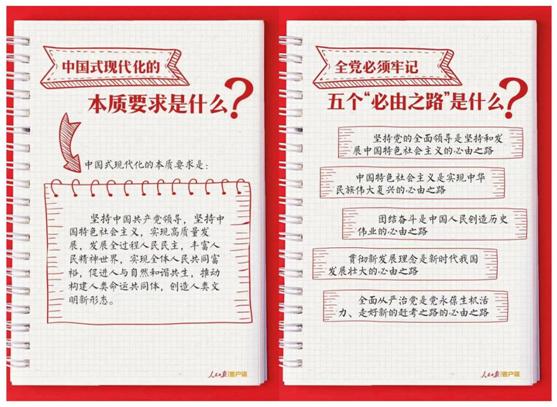 中国式现代化的
本质要求是什么?
中国式现代化的本质要求是:
坚持中国共产党领导,坚持中
国特色社会主义,实现高质量发
展,发展全过程人民民主,丰富人
民精神世界,实现全体人民共同富
裕,促进人与自然和谐共生,推动
构建人类命运共同体,创造人类文
明新形态。
人民日报 客户端
全党必须牢记
五个“必由之路”是什么?
坚持党的全面领导是坚持和发
展中国特色社会主义的必由之路
中国特色社会主义是实现中华
民族伟大复兴的必由之路
团结奋斗是中国人民创造历史
伟业的必由之路
贯彻新发展理念是新时代我国
发展壮大的必由之路
全面从严治党是党永葆生机活
力、走好新的赶考之路的必由之路
人民日报 客户端